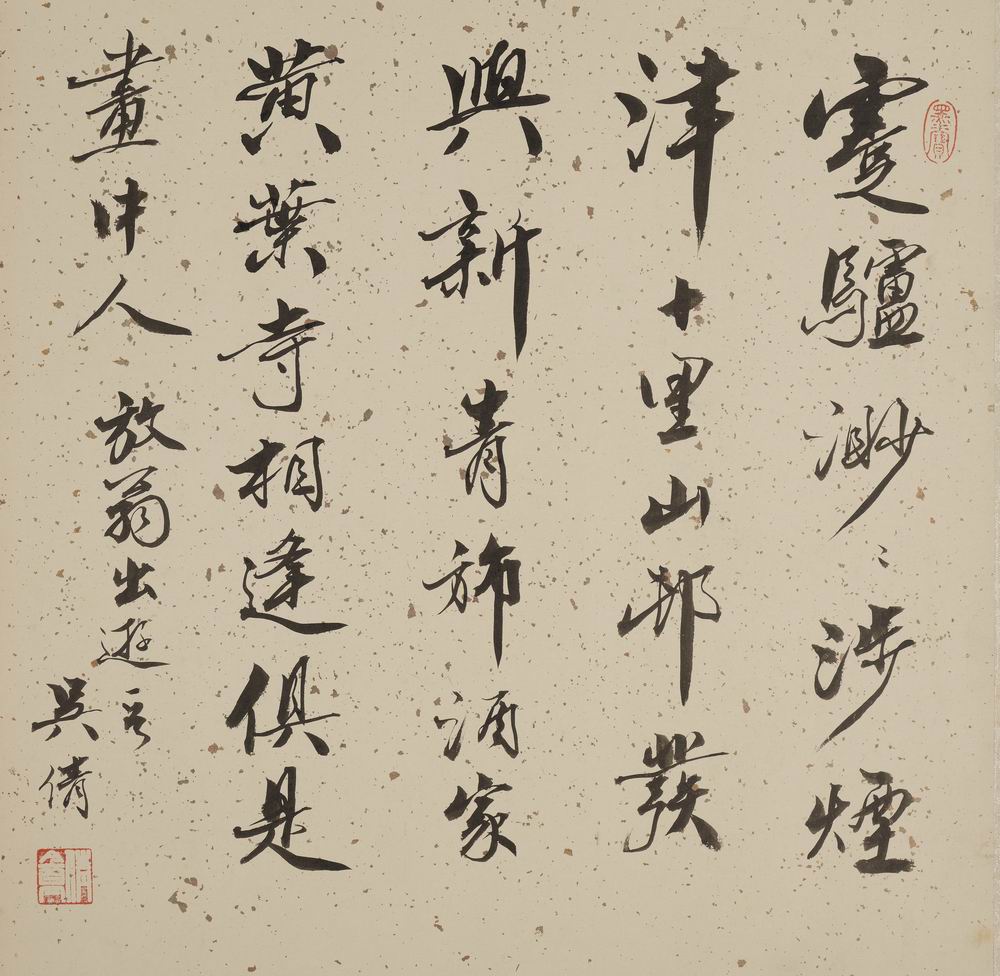 蹇驢渺〻涉煙
津十里山邨發
興新青旆酒家
黄葉寺相逢俱是
畫中人 放翁出遊之
吴倩